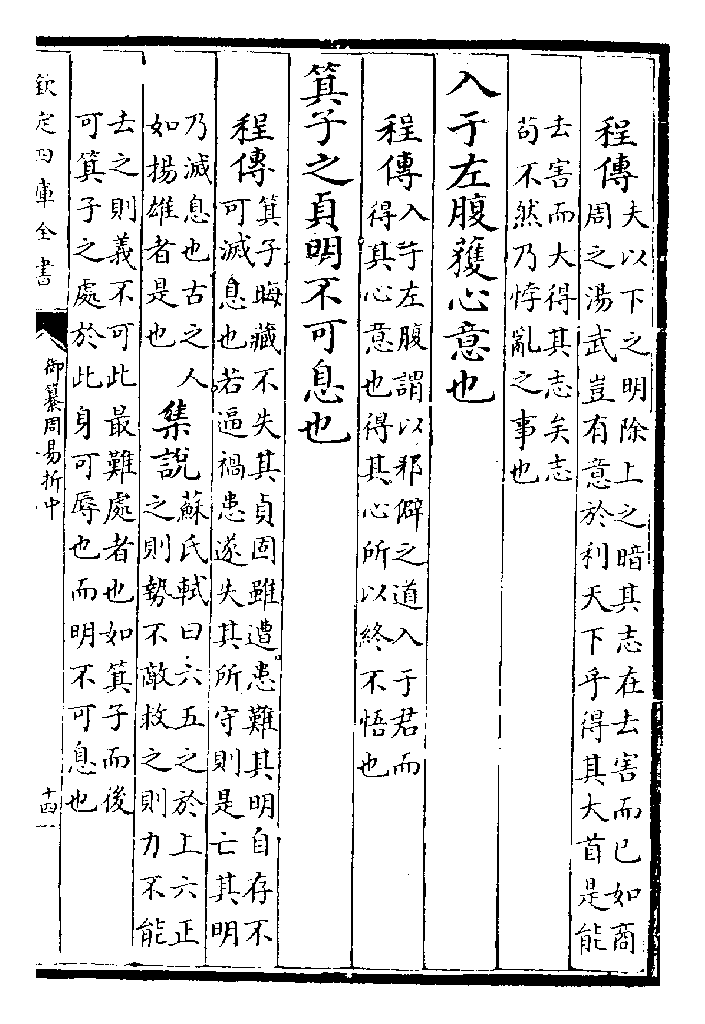 程傳夫以下之明除上之暗其志在去害而已如商
周之湯武豈有意於利天下乎得其大首是能
去害而大得其志矣志
苟不然乃悖亂之事也
入于左腹獲心意也
程傳入于左腹謂以邪僻之道入于君而
得其心意也得其心所以終不悟也
箕子之貞明不可息也
程傳箕子晦藏不失其貞固雖遭患難其明自存不
可滅息也若逼禍患遂失其所守則是亡其明
乃滅息也古之人
如揚雄者是也
集說蘇氏軾曰六五之於上六正
之則勢不敵救之則力不能
去之則義不可此最難處者也如箕子而後
可箕子之處於此身可辱也而明不可息也
欽定四庫全書
御纂周易折中
十四